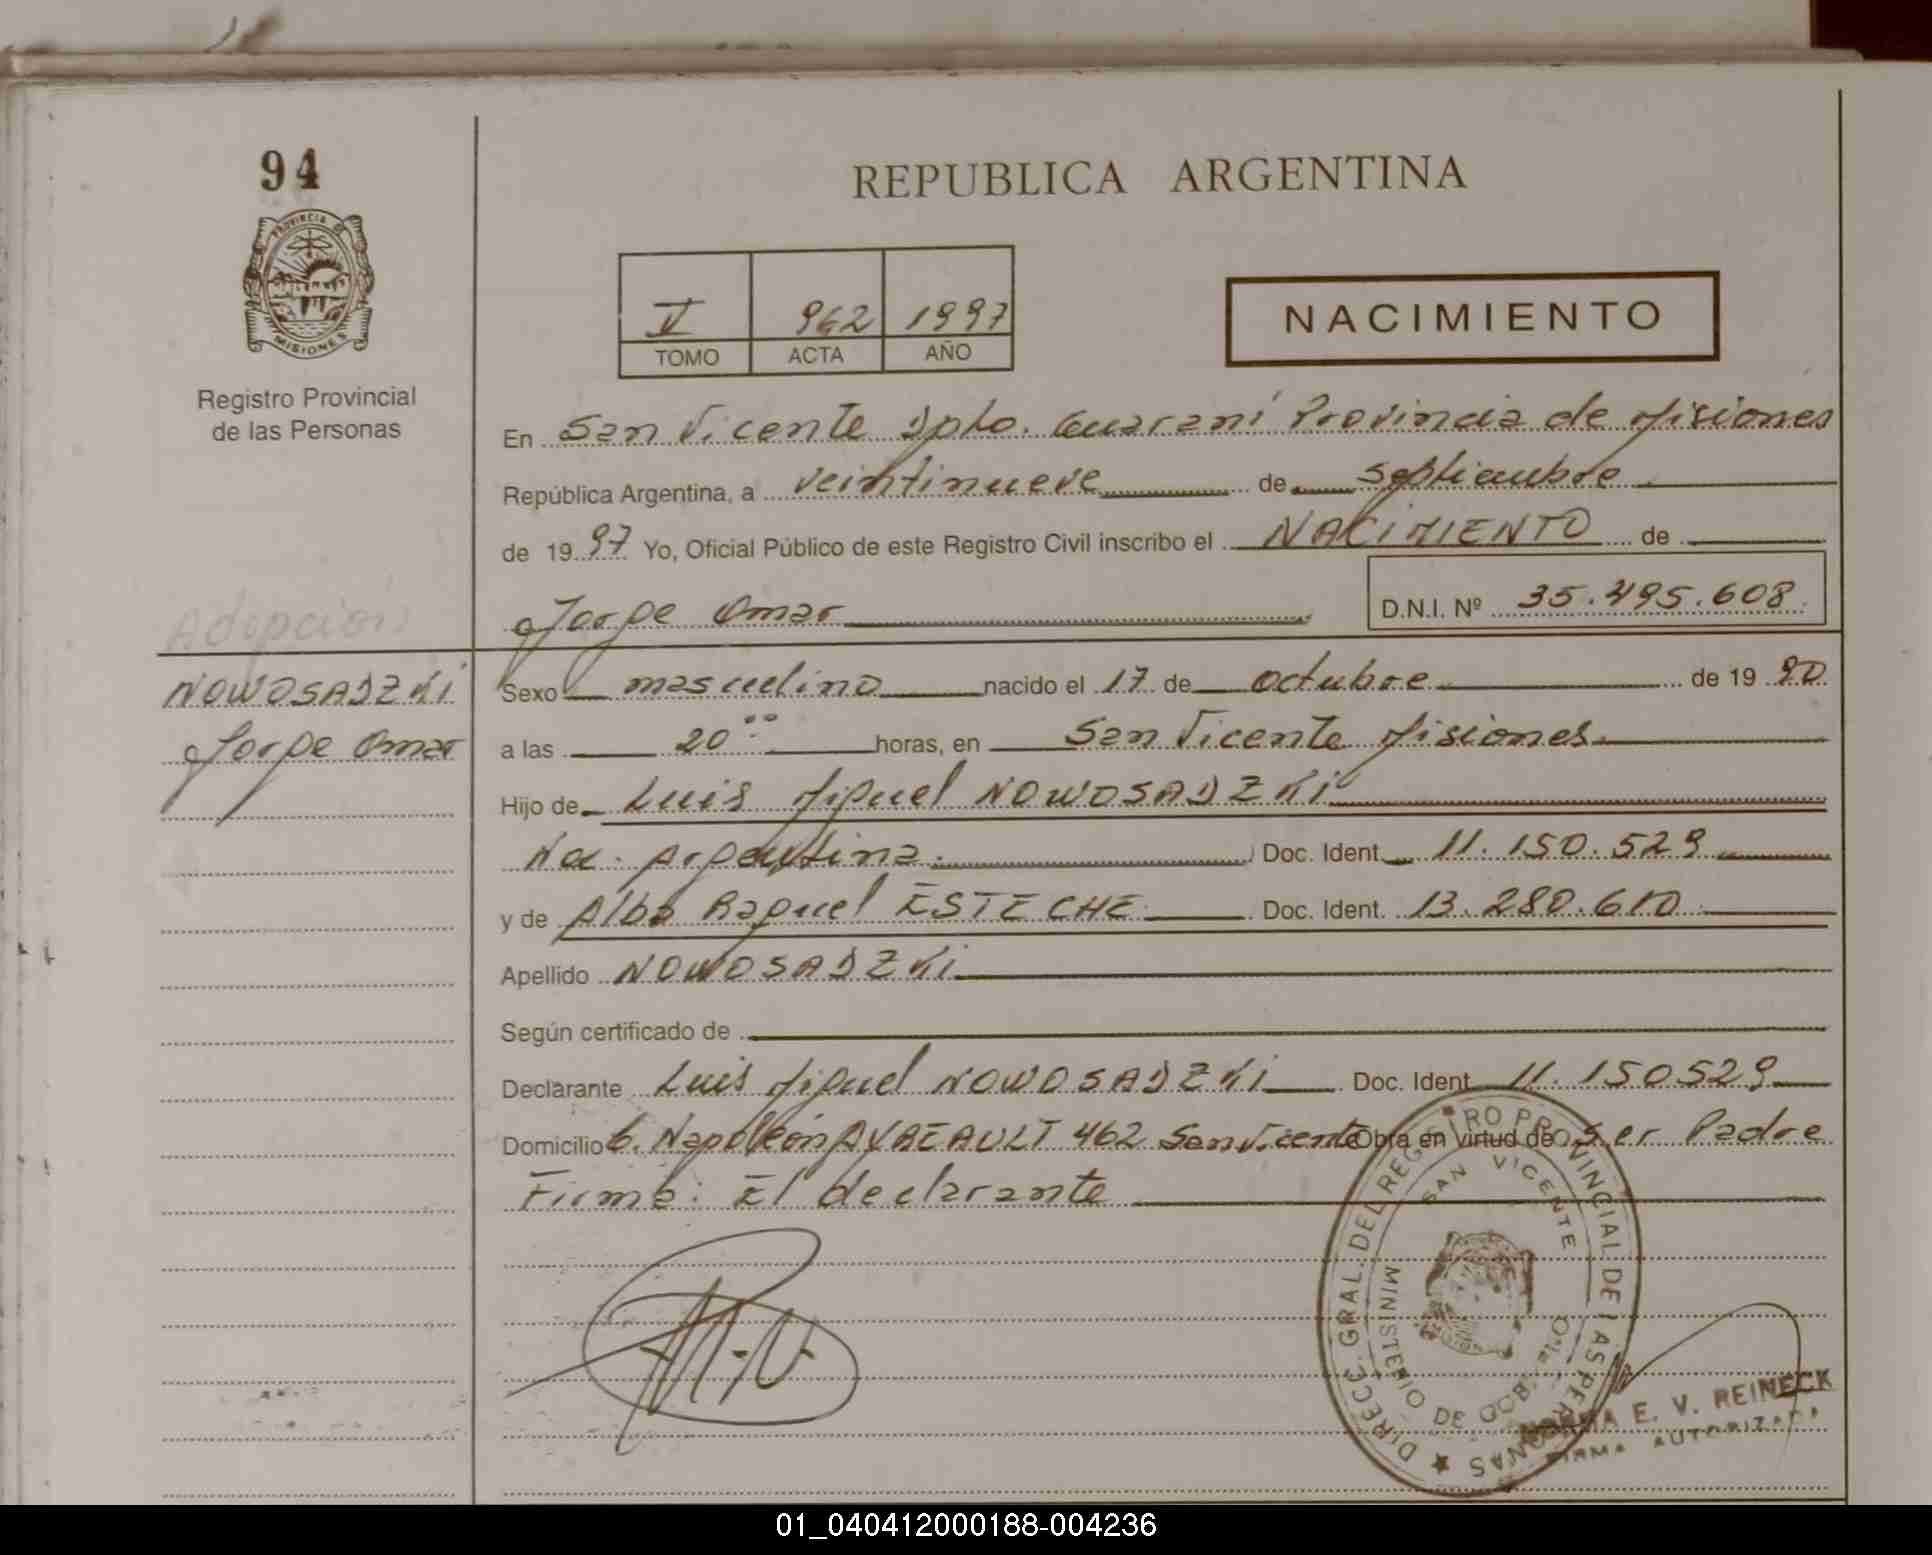 94
REPUBLICA ARGENTINA
PROVINCIA DE
MISIONES
V 962 1997
TOMO ACTA AÑO
NACIMIENTO
Registro Provincial
de las Personas
En San Vicente Dpto. Guaraní Provincia de Misiones
República Argentina, a veintinueve de septiembre
de 1997 Yo, Oficial Público de este Registro Civil inscribo el NACIMIENTO de
Jorge Omar D.N.I. Nº 35.495.608
Adopción
NOWOSADZKI
Jorge Omar
Sexo masculino nacido el 17 de octubre de 1990
a las 20:00 horas, en San Vicente Misiones
Hijo de Luis Miguel NOWOSADZKI
Nac. Argentina. Doc. Ident. 11.150.529
y de Alba Raquel ESTECHE Doc. Ident. 13.280.610
Apellido NOWOSADZKI
Según certificado de
Declarante Luis Miguel NOWOSADZKI Doc. Ident. 11.150529
Domicilio C. Napoleón 462 San Vicente Obra en virtud de Ser Padre
Firma: El declarante
DIRECC. GRAL. DEL REGISTRO PROVINCIAL DE LAS PERSONAS
SAN VICENTE
MINISTERIO DE GOB.
NORMA E. V. REINECK
FIRMA AUTORIZADA
01_040412000188-004236